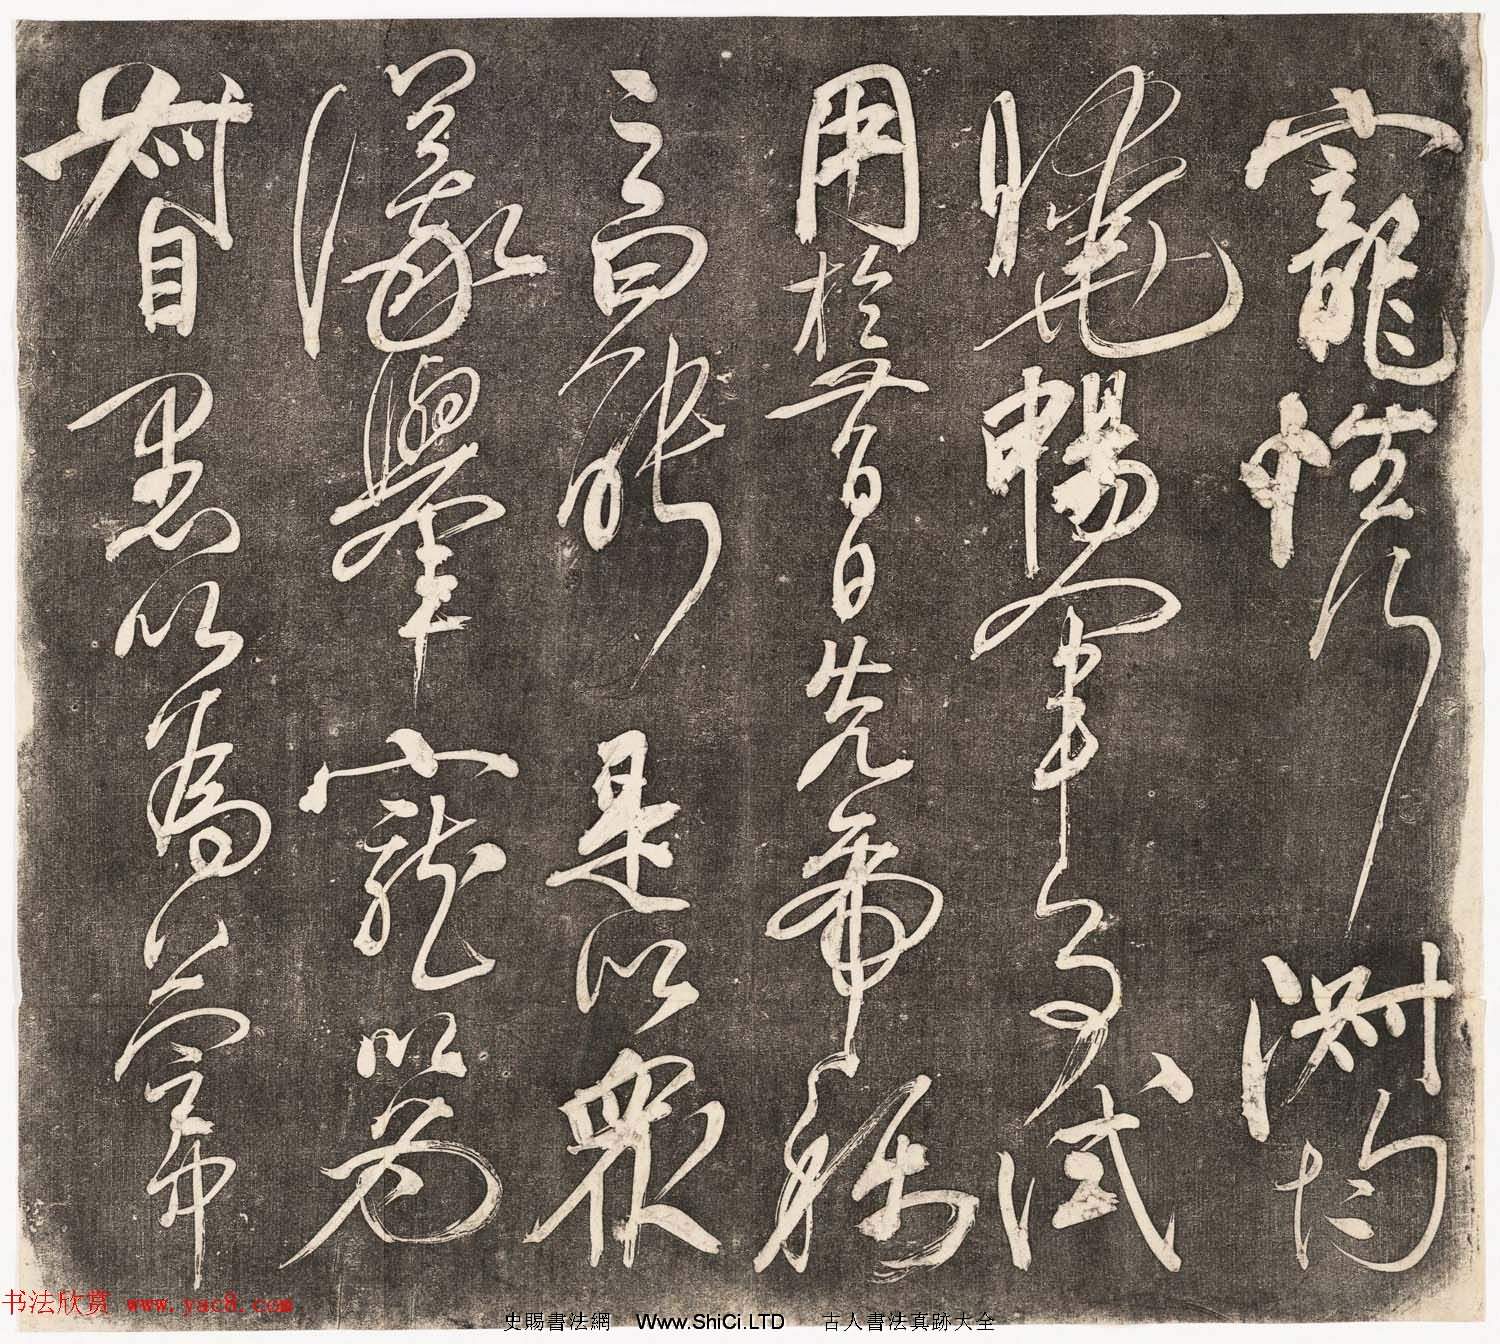 寵性行淑均
曉暢軍事試
用於昔日先帝稱
之曰能是以衆
議舉寵以為
督愚以為營中
书法欣赏 www.yac8.com
史賜書法網 Www.ShiCi.LTD 古人書法真跡大全